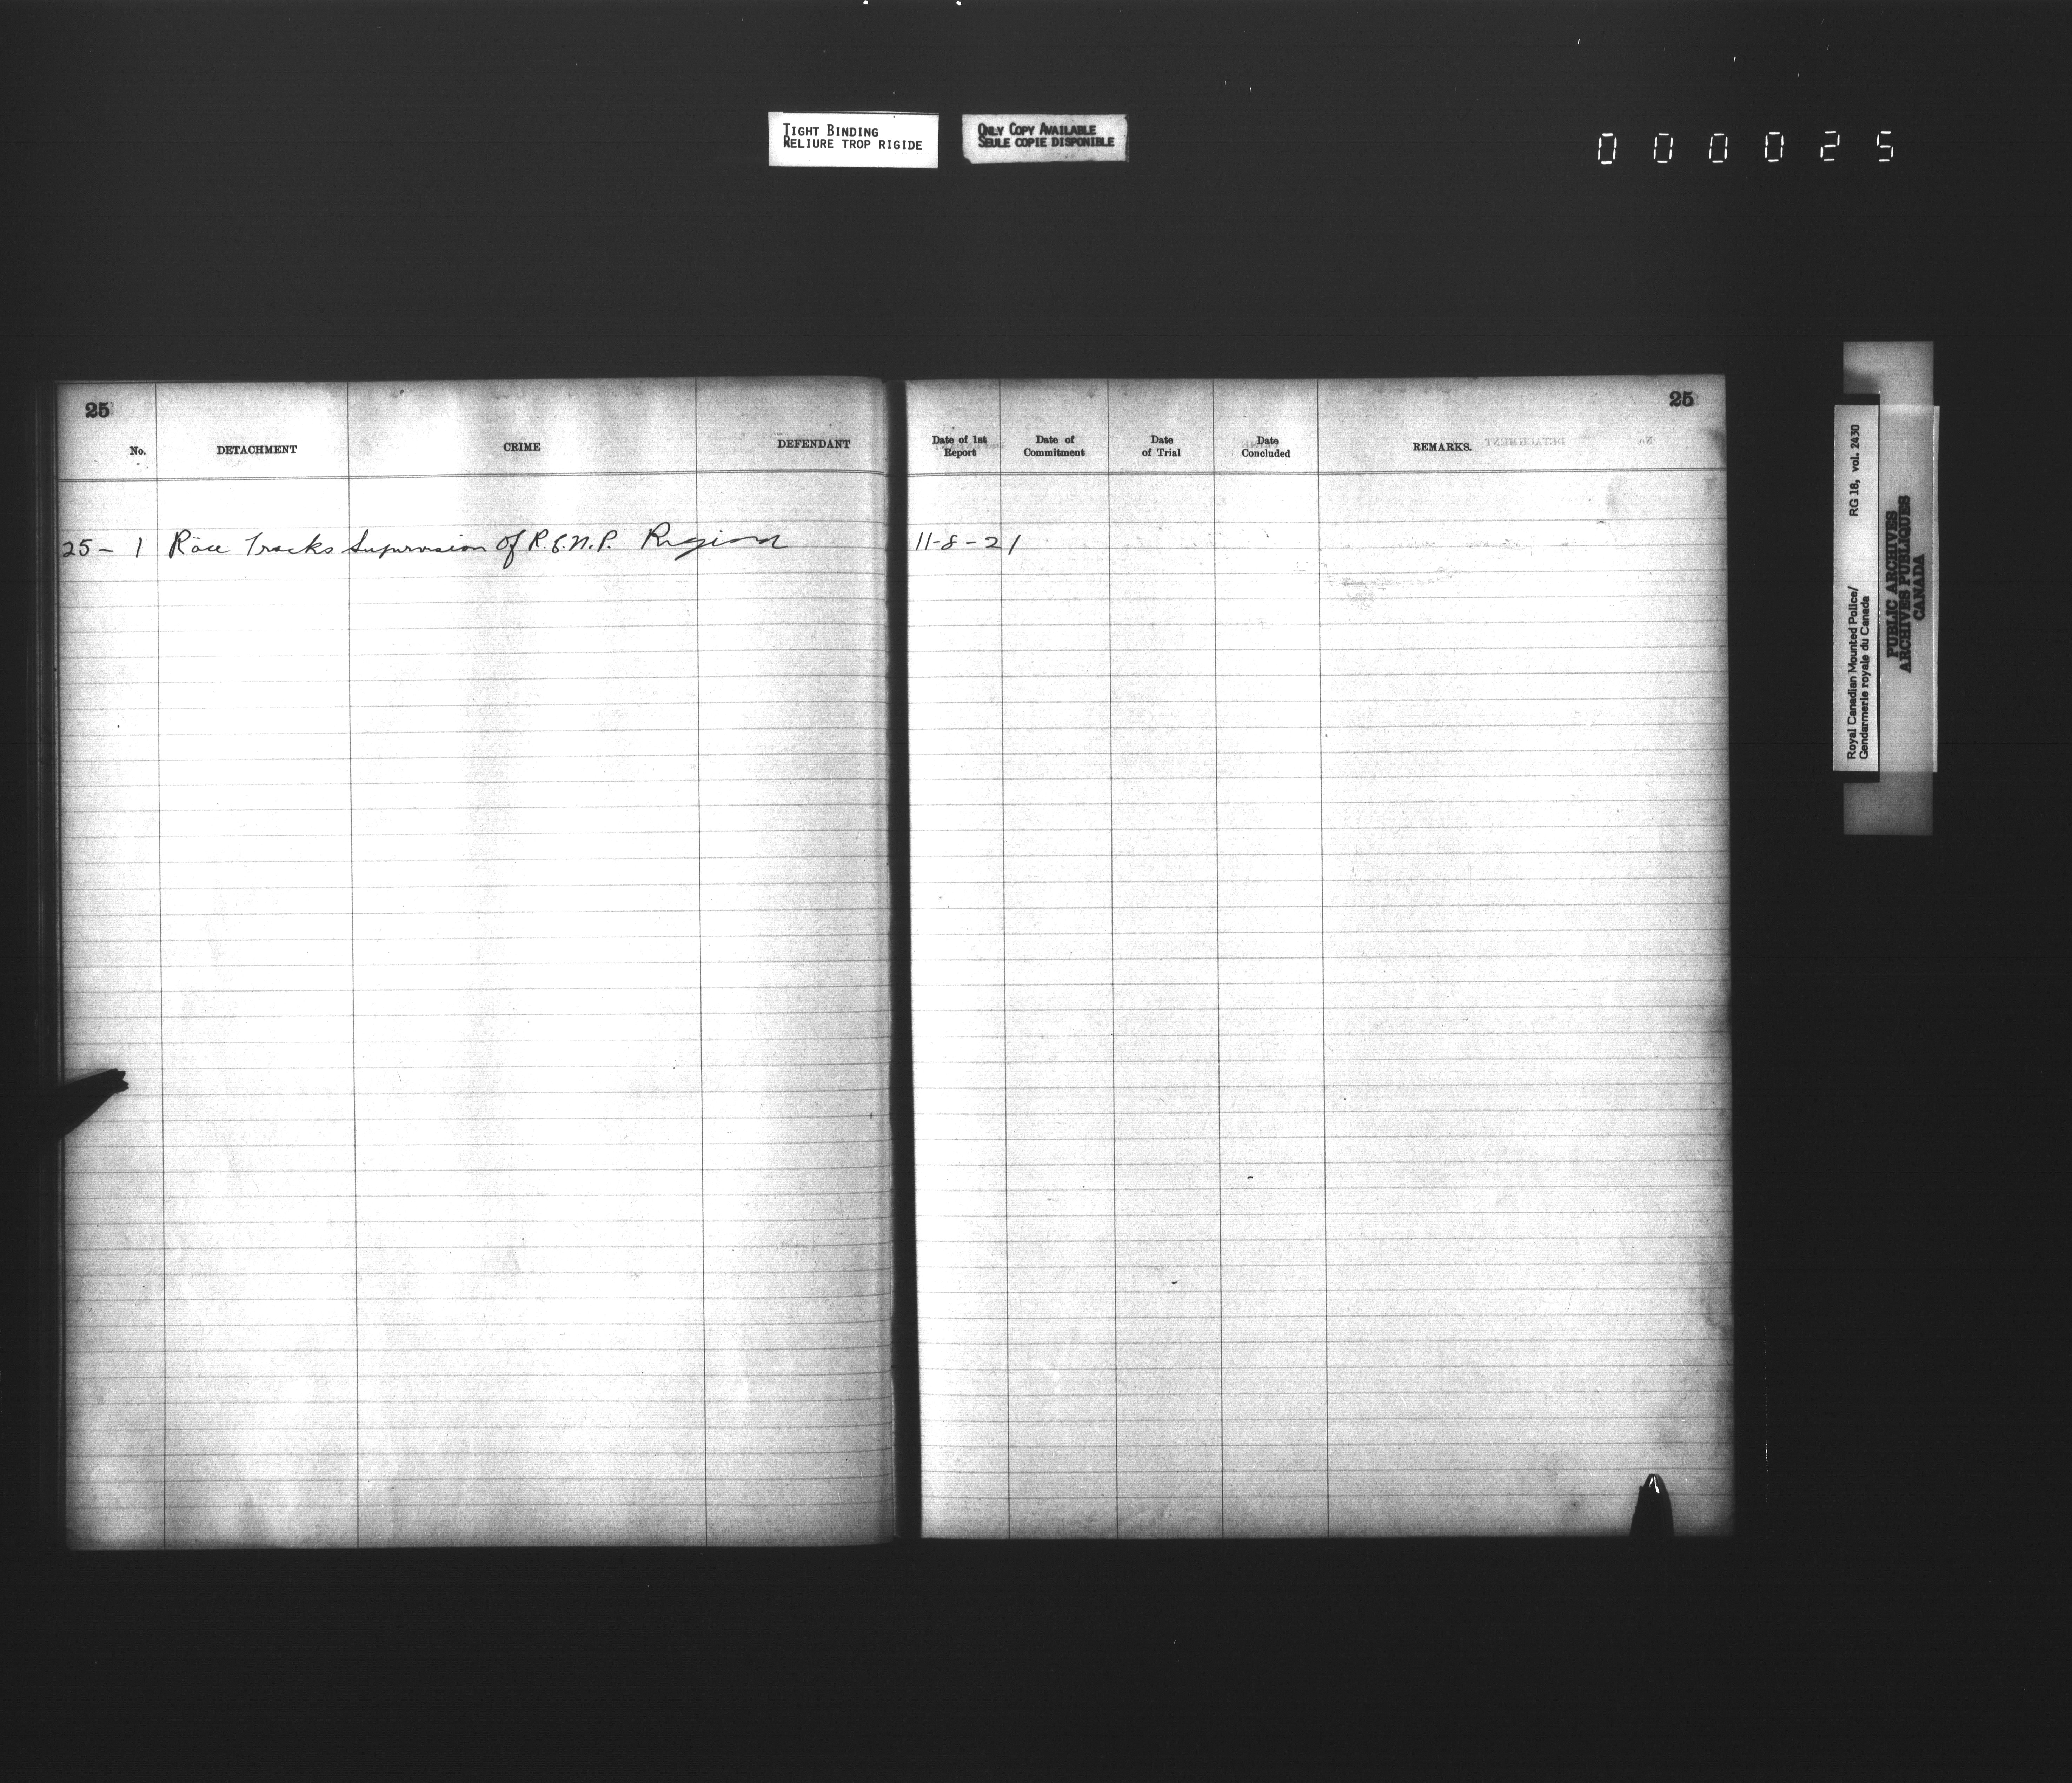 TIGHT BINDING
RELIURE TROP RIGIDE
ONLY COPY AVAILABLE
SEULE COPIE DISPONIBLE
000025
25
No. DETACHMENT CRIME DEFENDANT
25-1 Race Tracks Supervision of R.C.M.P. Regina
25
Date of 1st Report Date of Commitment Date of Trial Date Concluded REMARKS.
11-8-21
Royal Canadian Mounted Police/ RG 18, vol. 2430
Gendarmerie royale du Canada
PUBLIC ARCHIVES
ARCHIVES PUBLIQUES
CANADA